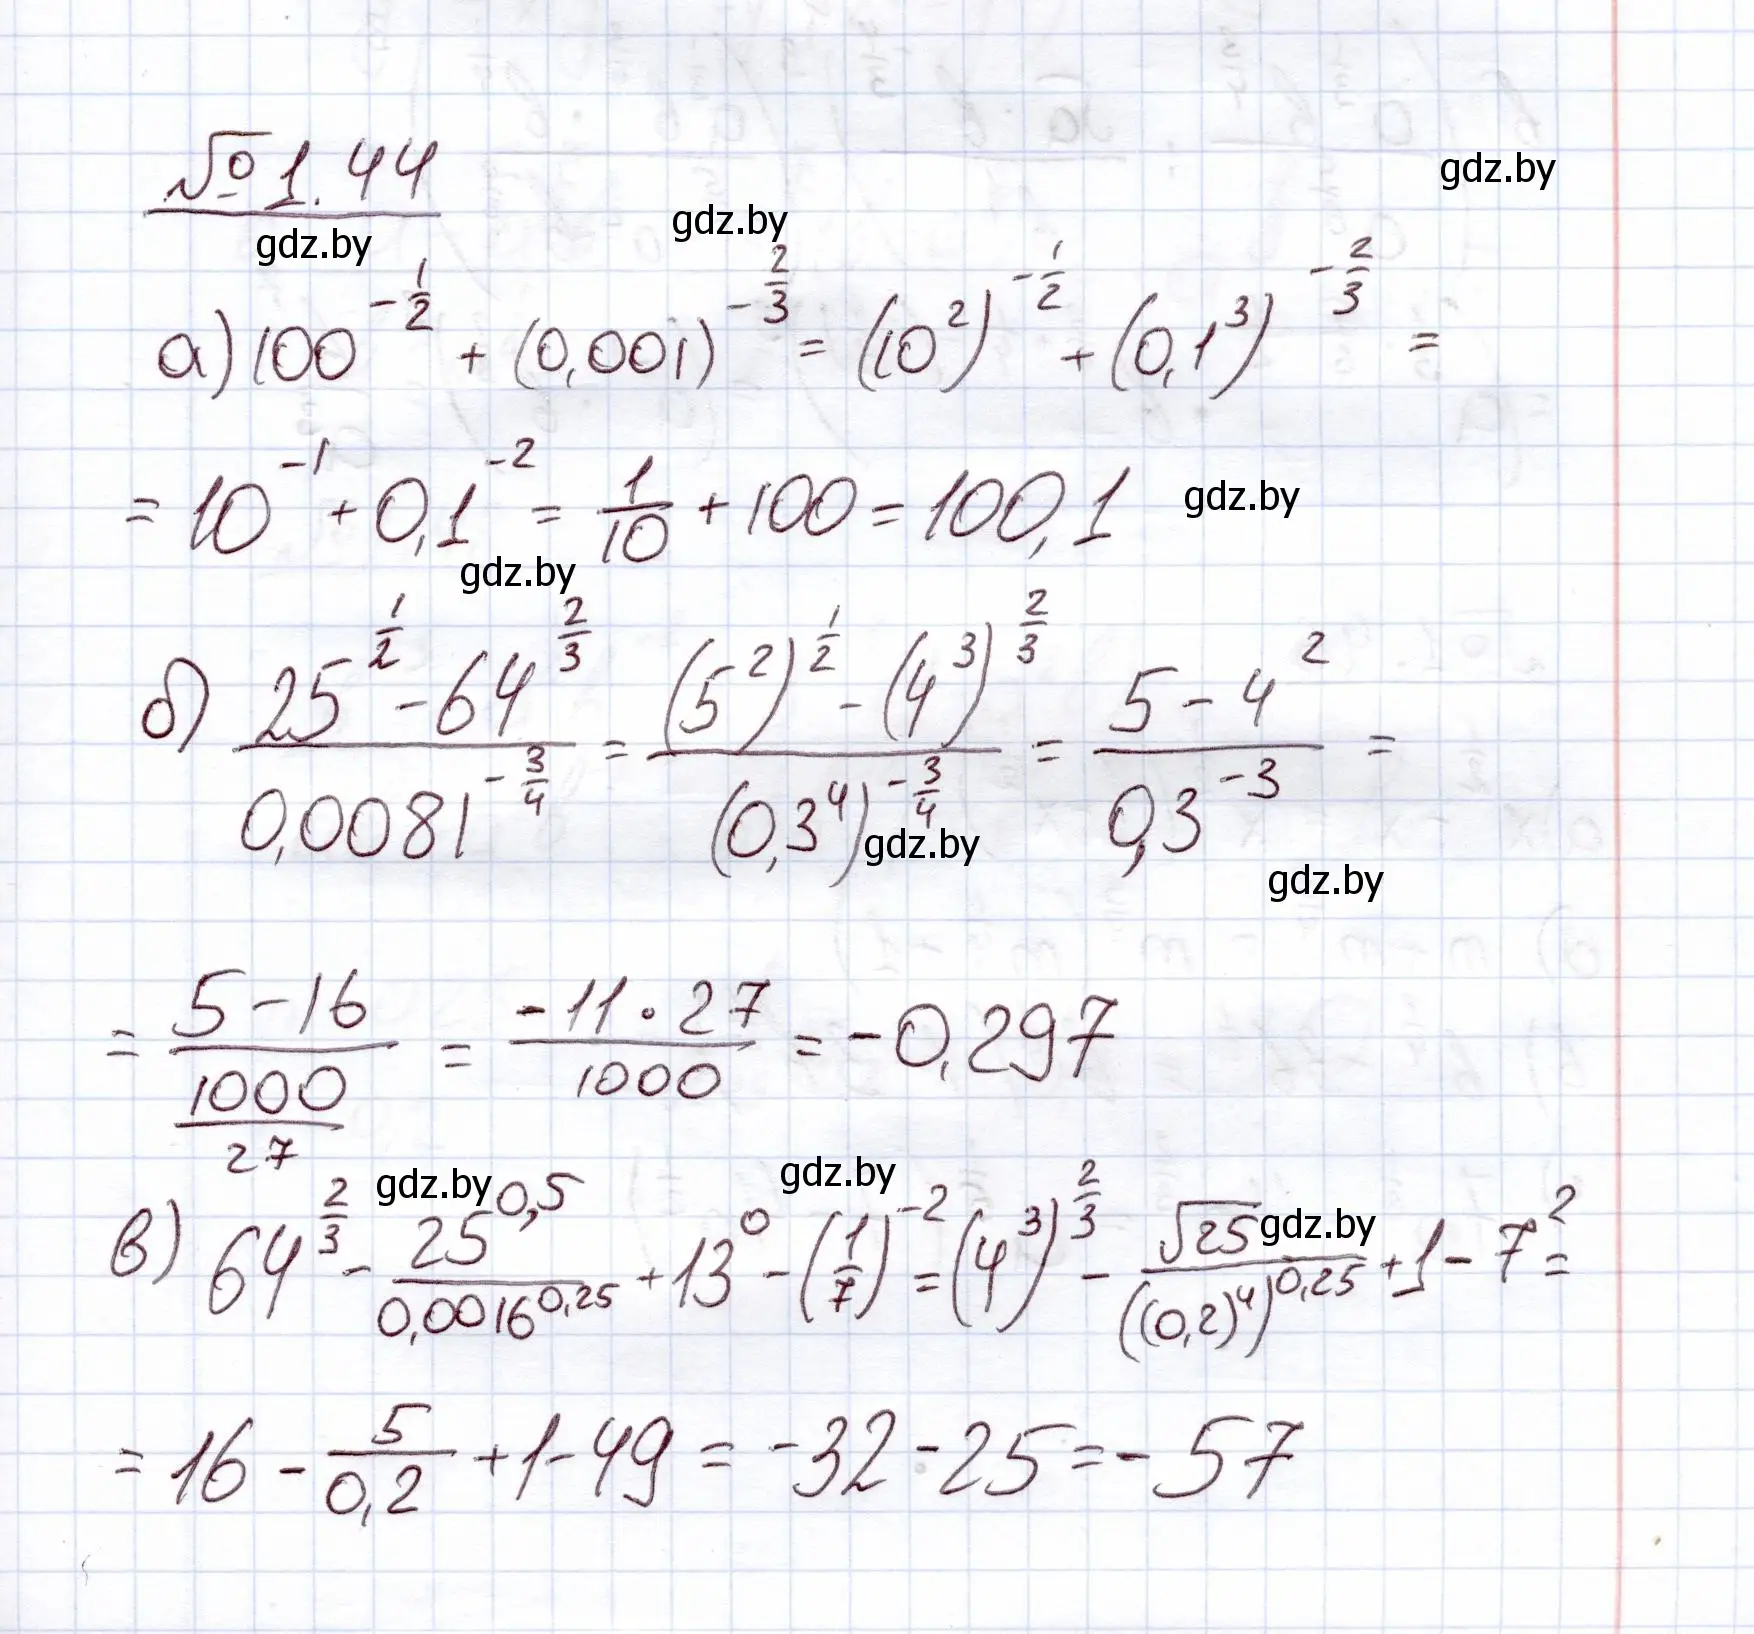 № 1.44
gdz.by
gdz.by
gdz.by
а) 100^(-1/2) + (0,001)^(-2/3) = (10^2)^(-1/2) + (0,1^3)^(-2/3) =
= 10^(-1) + 0,1^(-2) = 1/10 + 100 = 100,1
gdz.by
gdz.by
б) (25^(1/2) - 64^(2/3)) / (0,0081^(-3/4)) = ((5^2)^(1/2) - (4^3)^(2/3)) / ((0,3^4)^(-3/4)) = (5 - 4^2) / (0,3^(-3)) =
gdz.by
gdz.by
= (5 - 16) / (1000/27) = (-11 · 27) / 1000 = -0,297
gdz.by
gdz.by
gdz.by
в) 64^(2/3) - 25^(0,5) / 0,0016^(0,25) + 13^0 - (1/7)^(-2) = (4^3)^(2/3) - √25 / ((0,2)^4)^(0,25) + 1 - 7^2 =
= 16 - 5/0,2 + 1 - 49 = -32 - 25 = -57